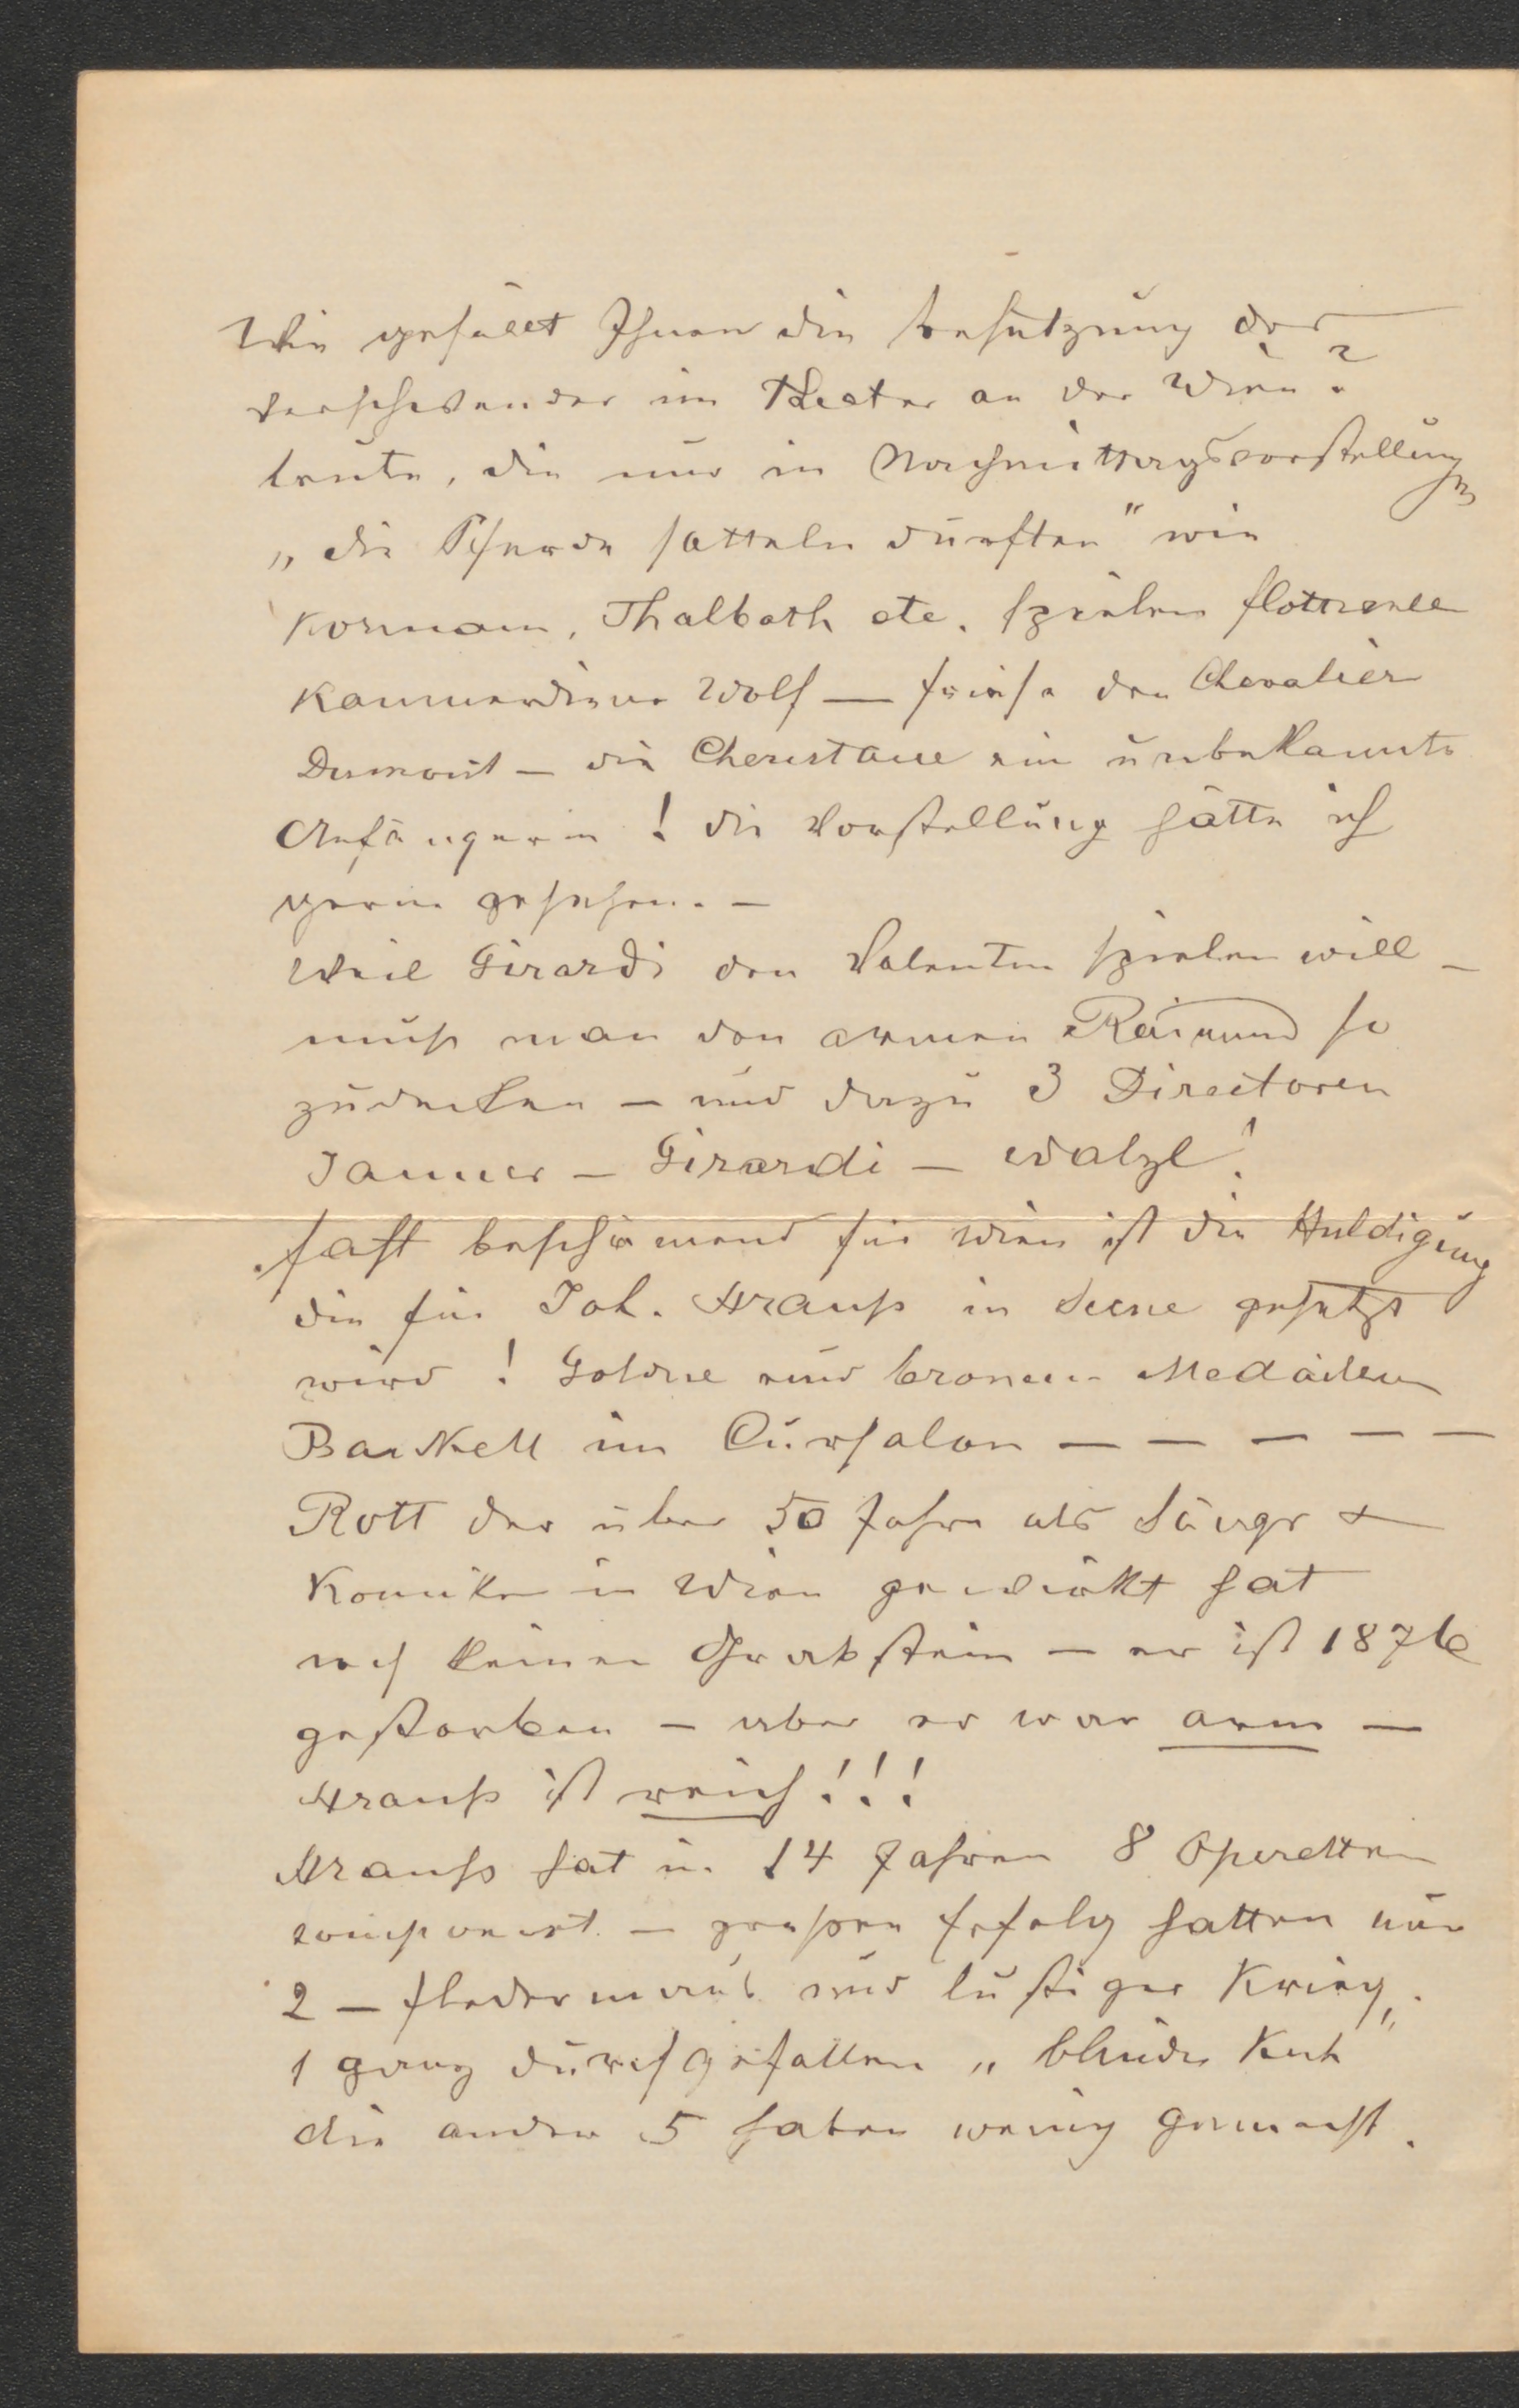 Wie gefällt Ihnen die Besetzung der
Verschwender im Theater an der Wien?
Leute, die nur in Nachmittagsvorstellungen
„die Pferde satteln durften" wie
Kormann, Thalboth etc. spielen Flottwell
Kammerdiener Wolf — Friese den Chevalier
Dumont — die Cheristane eine unbekannte
Anfängerin! die Vorstellung hätte ich
gerne gesehen. —
Weil Girardi den Valentin spielen will —
muß man den armen Raimund so
zudecken — und dazu 3 Directoren
Jauner — Girardi — Walzl!
fast beschämend für Wien ist die Huldigung
die für Joh. Strauß in Scene gesetzt
wird! Goldne und broncene Medailen
Bankett im Cursalon — — — — —
Rott der über 50 Jahre als Sänger &
Komiker in Wien gewirkt hat
noch keinen Grabstein — er ist 1876
gestorben — aber er war arm —
Strauß ist reich!!!
Strauß hat in 14 Jahren 8 Operetten
componirt — großen Erfolg hatten nur
2 — Fledermaus und lustiger Krieg.
1 ganz durchgefallen „blinde Kuh"
die andern 5 haben wenig gemacht.